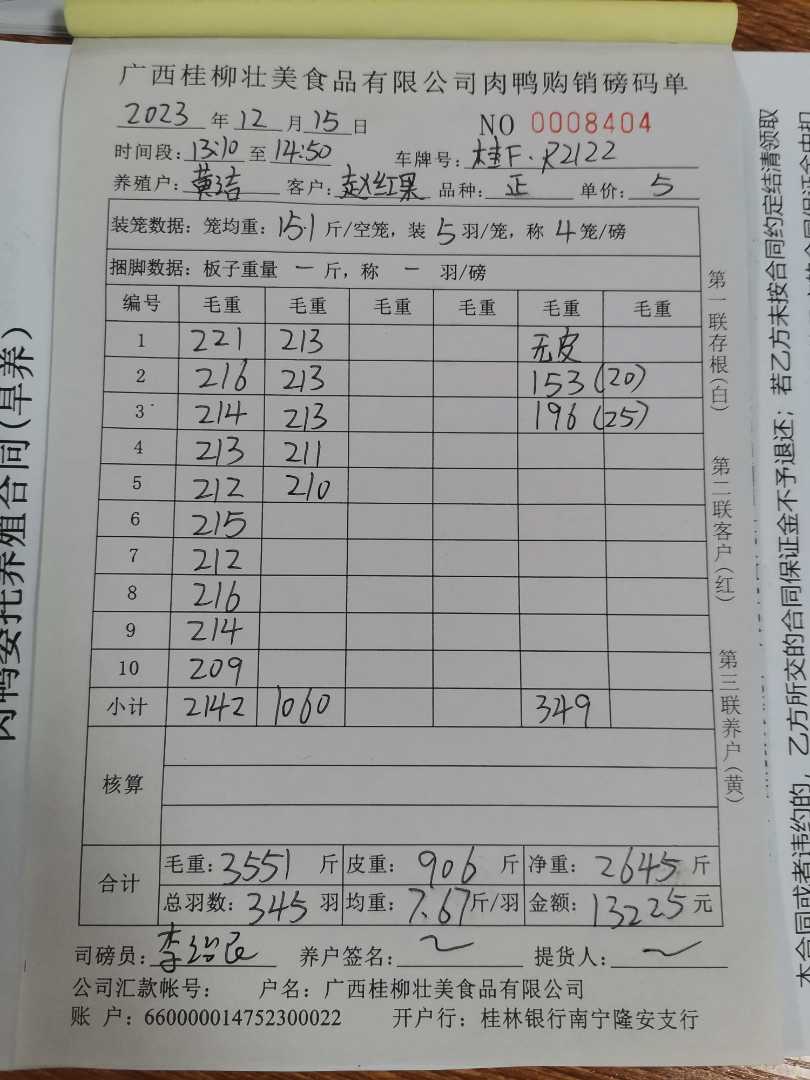 广西桂柳壮美食品有限公司肉鸭购销磅码单
2023 年 12 月 15 日 NO 0008404
时间段: 13:10 至 14:50 车牌号: 桂F·R2122
养殖户: 黄洁 客户: 赵红果 品种: 正 单价: 5
装笼数据: 笼均重: 15.1 斤/空笼, 装 5 羽/笼, 称 4 笼/磅
捆脚数据: 板子重量 一 斤, 称 一 羽/磅
编号 毛重 毛重 毛重 毛重 毛重 毛重
1 221 213 无皮
2 216 213 153 (20)
3 214 213 196 (25)
4 213 211
5 212 210
6 215
7 212
8 216
9 214
10 209
小计 2142 1060 349
核算
合计
毛重: 3551 斤 皮重: 906 斤 净重: 2645 斤
总羽数: 345 羽 均重: 7.67 斤/羽 金额: 13225 元
司磅员: 李 民 养户签名: 提货人:
公司汇款帐号: 户名: 广西桂柳壮美食品有限公司
账 户: 660000014752300022 开户行: 桂林银行南宁隆安支行
第一联存根(白) 第二联客户(红) 第三联养户(黄)
肉鸭委托养殖合同(旱养)
若乙方未按合同约定结清领取
乙方所交的合同保证金不予退还;
本合同或者违约的,